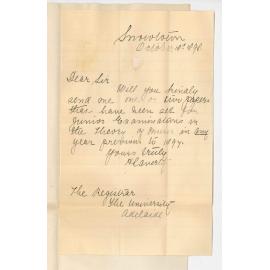 Snowtown
October 1st 1898
Dear Sir
Will you kindly
send me one or two papers
that have been set for
Junior Examinations in
the Theory of Music in any
year previous to 1897.
Yours truly
The Registrar
The University
Adelaide